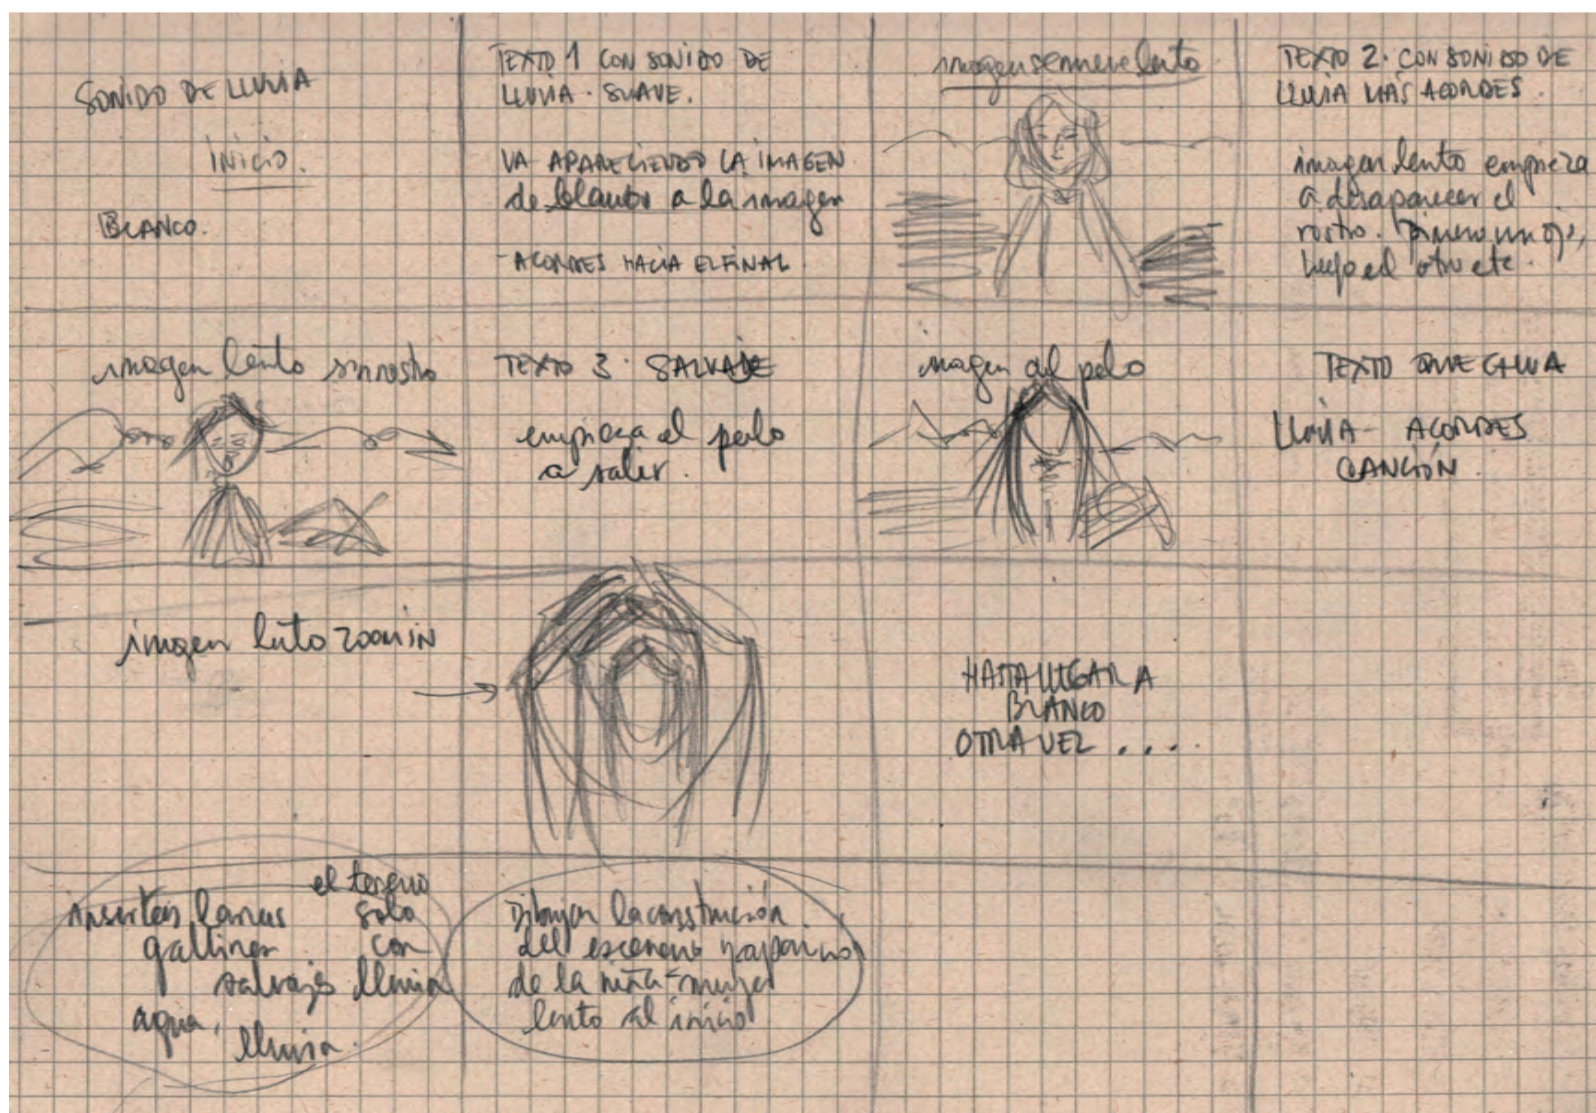 SONIDO DE LLUVIA
INICIO.
BLANCO.
TEXTO 1 CON SONIDO DE
LLUVIA. SUAVE.
VA APARECIENDO LA IMAGEN
de blanco a la imagen
- ACORDES HACIA EL FINAL.
imagen se mueve lento
TEXTO 2. CON SONIDO DE
LLUVIA MÁS ACORDES.
imagen lento empieza
a desaparecer el
rostro. Primero un ojo,
luego el otro etc.
imagen lento sin rostro
TEXTO 3. SALVAJE
empieza el pelo
a salir.
imagen del pelo
TEXTO
LLUVIA - ACORDES
CANCIÓN.
imagen lento ZOOM IN
HASTA LLEGAR A
BLANCO
OTRA VEZ ....
insertar
gallinas
salvajes
agua,
lluvia.
el terreno
solo
con
lluvia
Dibujar la construcción
del escenario
de la niña-mujer
lento al inicio